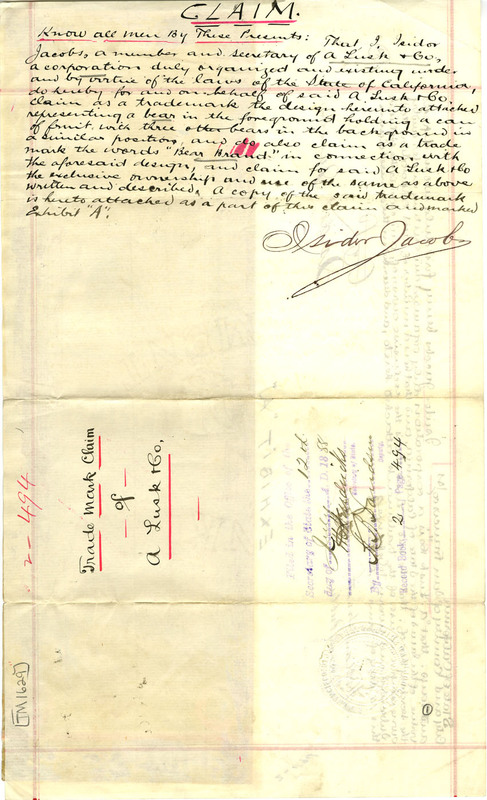 CLAIM.
Know all Men By These Presents: That I, Isidor
Jacobs, a member and secretary of A Lusk & Co,
a corporation duly organized and existing under
and by virtue of the Laws of the State of California,
do hereby for and on behalf of said A Lusk & Co.
claim as a trademark the design hereunto attached
representing a bear in the foreground holding a can
of fruit, with three other bears in the background in
a similar position, and do also claim as a trade
mark the words "Bear Brand" in connection with
the aforesaid design, and claim for said A Lusk & Co
the exclusive ownership and use of the same as above
written and described. A copy of the said trademark
is hereto attached as a part of this claim and marked
Exhibit "A".
Isidor Jacobs
Trade Mark Claim
of
A Lusk & Co,
2-494
Filed in the office of the
Secretary of State the 12 day
day of 1888
Secretary of State
By
Deputy
Record Book 2 Page 494
TM1629